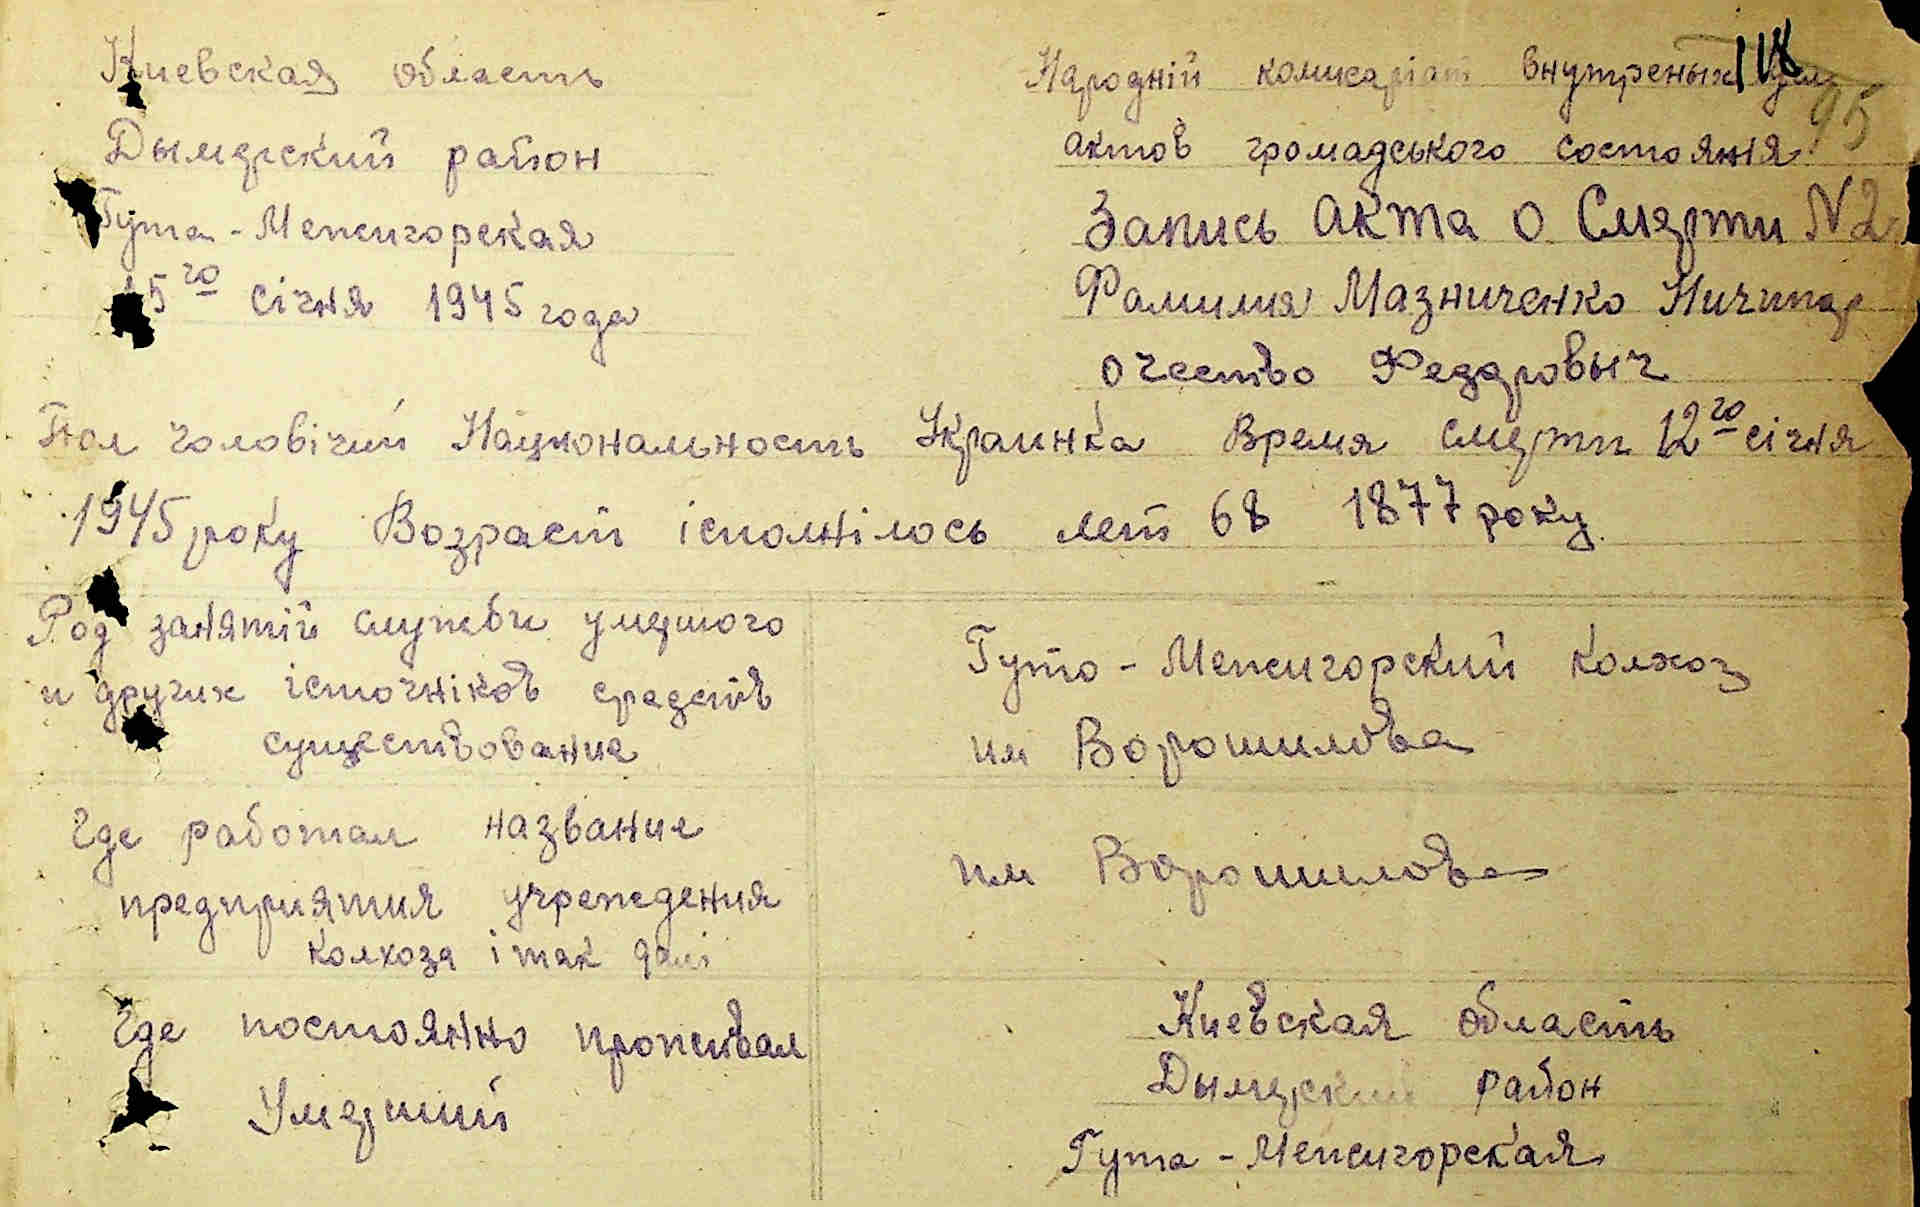 Киевская область
Дымерский район
Гута-Межигорская
15го січня 1945 года
118
95
Народній комисаріат внутреных дел
актов громадського состояння
Запись Акта о Смерти N2
Фамилия Мазниченко Ничипор
Очество Федоровыч
Пол чоловічий Национальность Украинка Время смерти 12го січня
1945 року Возраст ісполнілось лет 68 1877 року
Род занятій службы умершого
и других істочніков средств
существование
Гуто-Межигорский колхоз
им Ворошилова
Где работал название
предприятия учреждения
колхоза і так далі
им Ворошилова
Где постоянно проживал
Умерший
Киевская область
Дымерский район
Гута-Межигорская